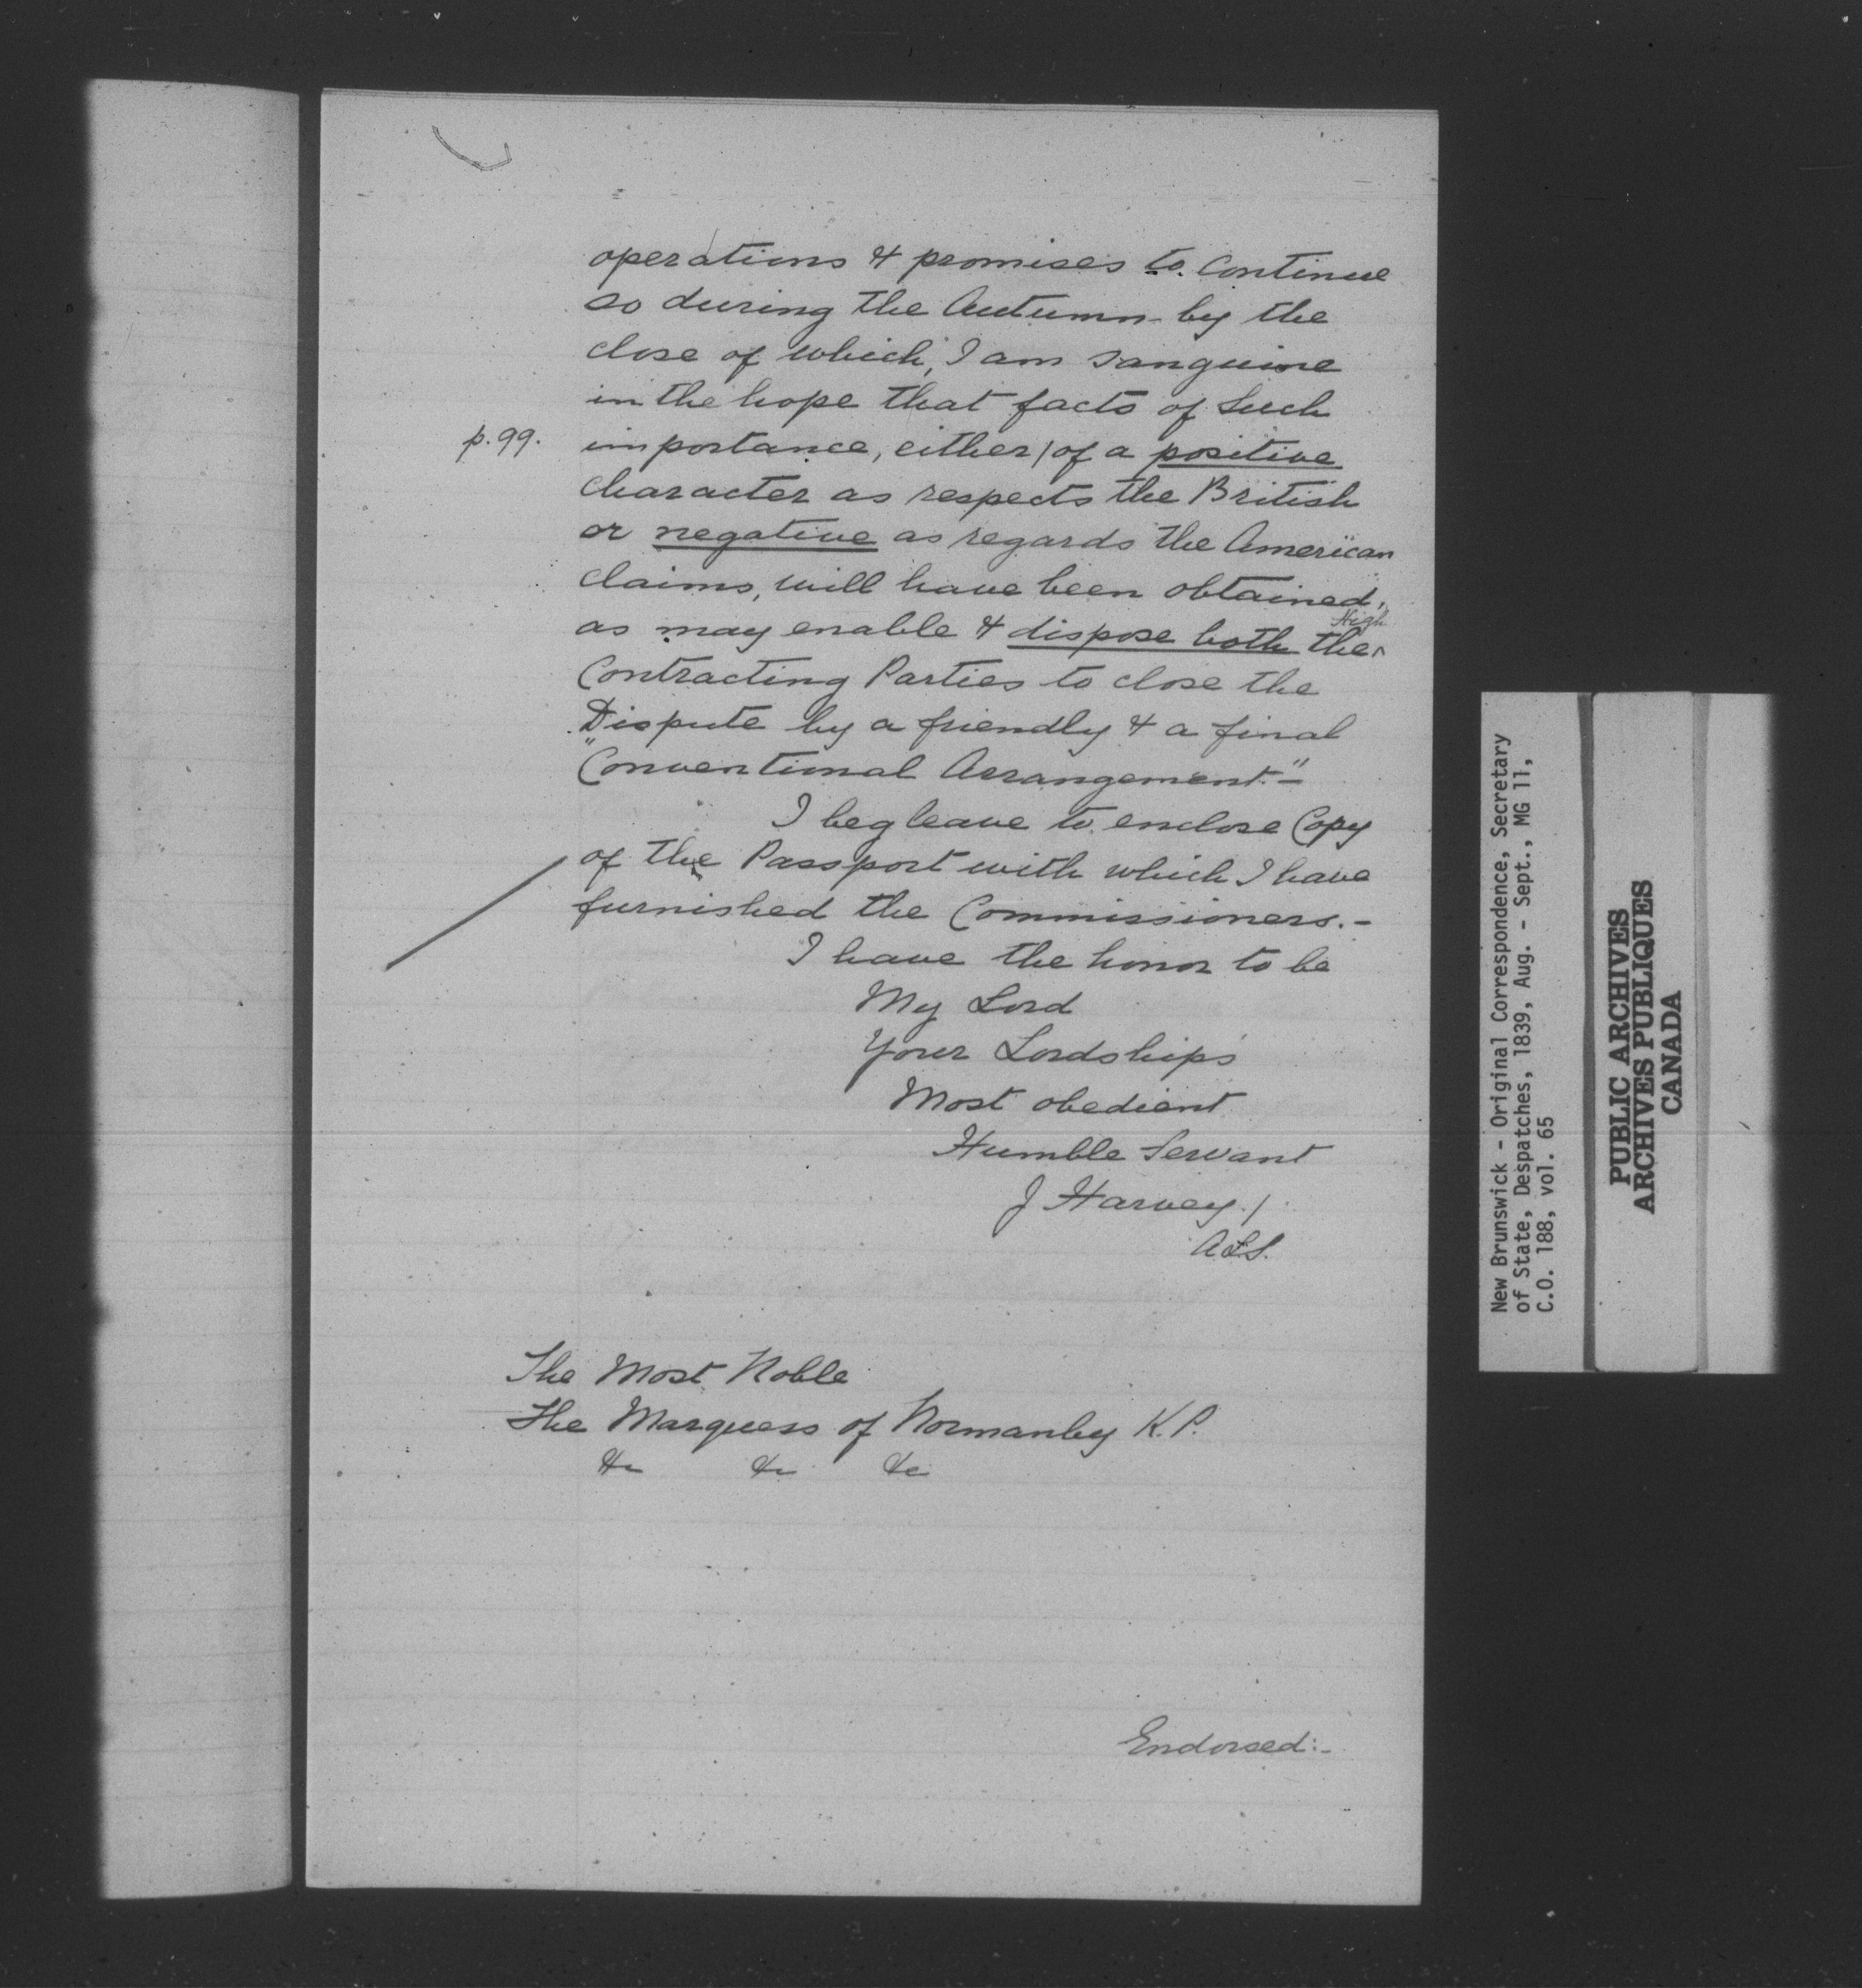 operations & promises to continue
so during the Autumn - by the
close of which, I am sanguine
in the hope that facts of such
p. 99. importance, either / of a positive
character as respects the British
or negative as regards the American
claims, will have been obtained,
High
as may enable & dispose both the ^
Contracting Parties to close the
Dispute by a friendly & a final
"Conventional Arrangement." -
I beg leave to enclose Copy
of the Passport with which I have
furnished the Commissioners. -
I have the honor to be
My Lord
Your Lordship's
Most obedient
Humble Servant
J Harvey. /
A.L.S.
The Most Noble
The Marquess of Normanby K.P.
&c &c &c
Endorsed:-
New Brunswick - Original Correspondence, Secretary
of State, Despatches, 1839, Aug. - Sept., MG 11,
C.O. 188, vol. 65
PUBLIC ARCHIVES
ARCHIVES PUBLIQUES
CANADA